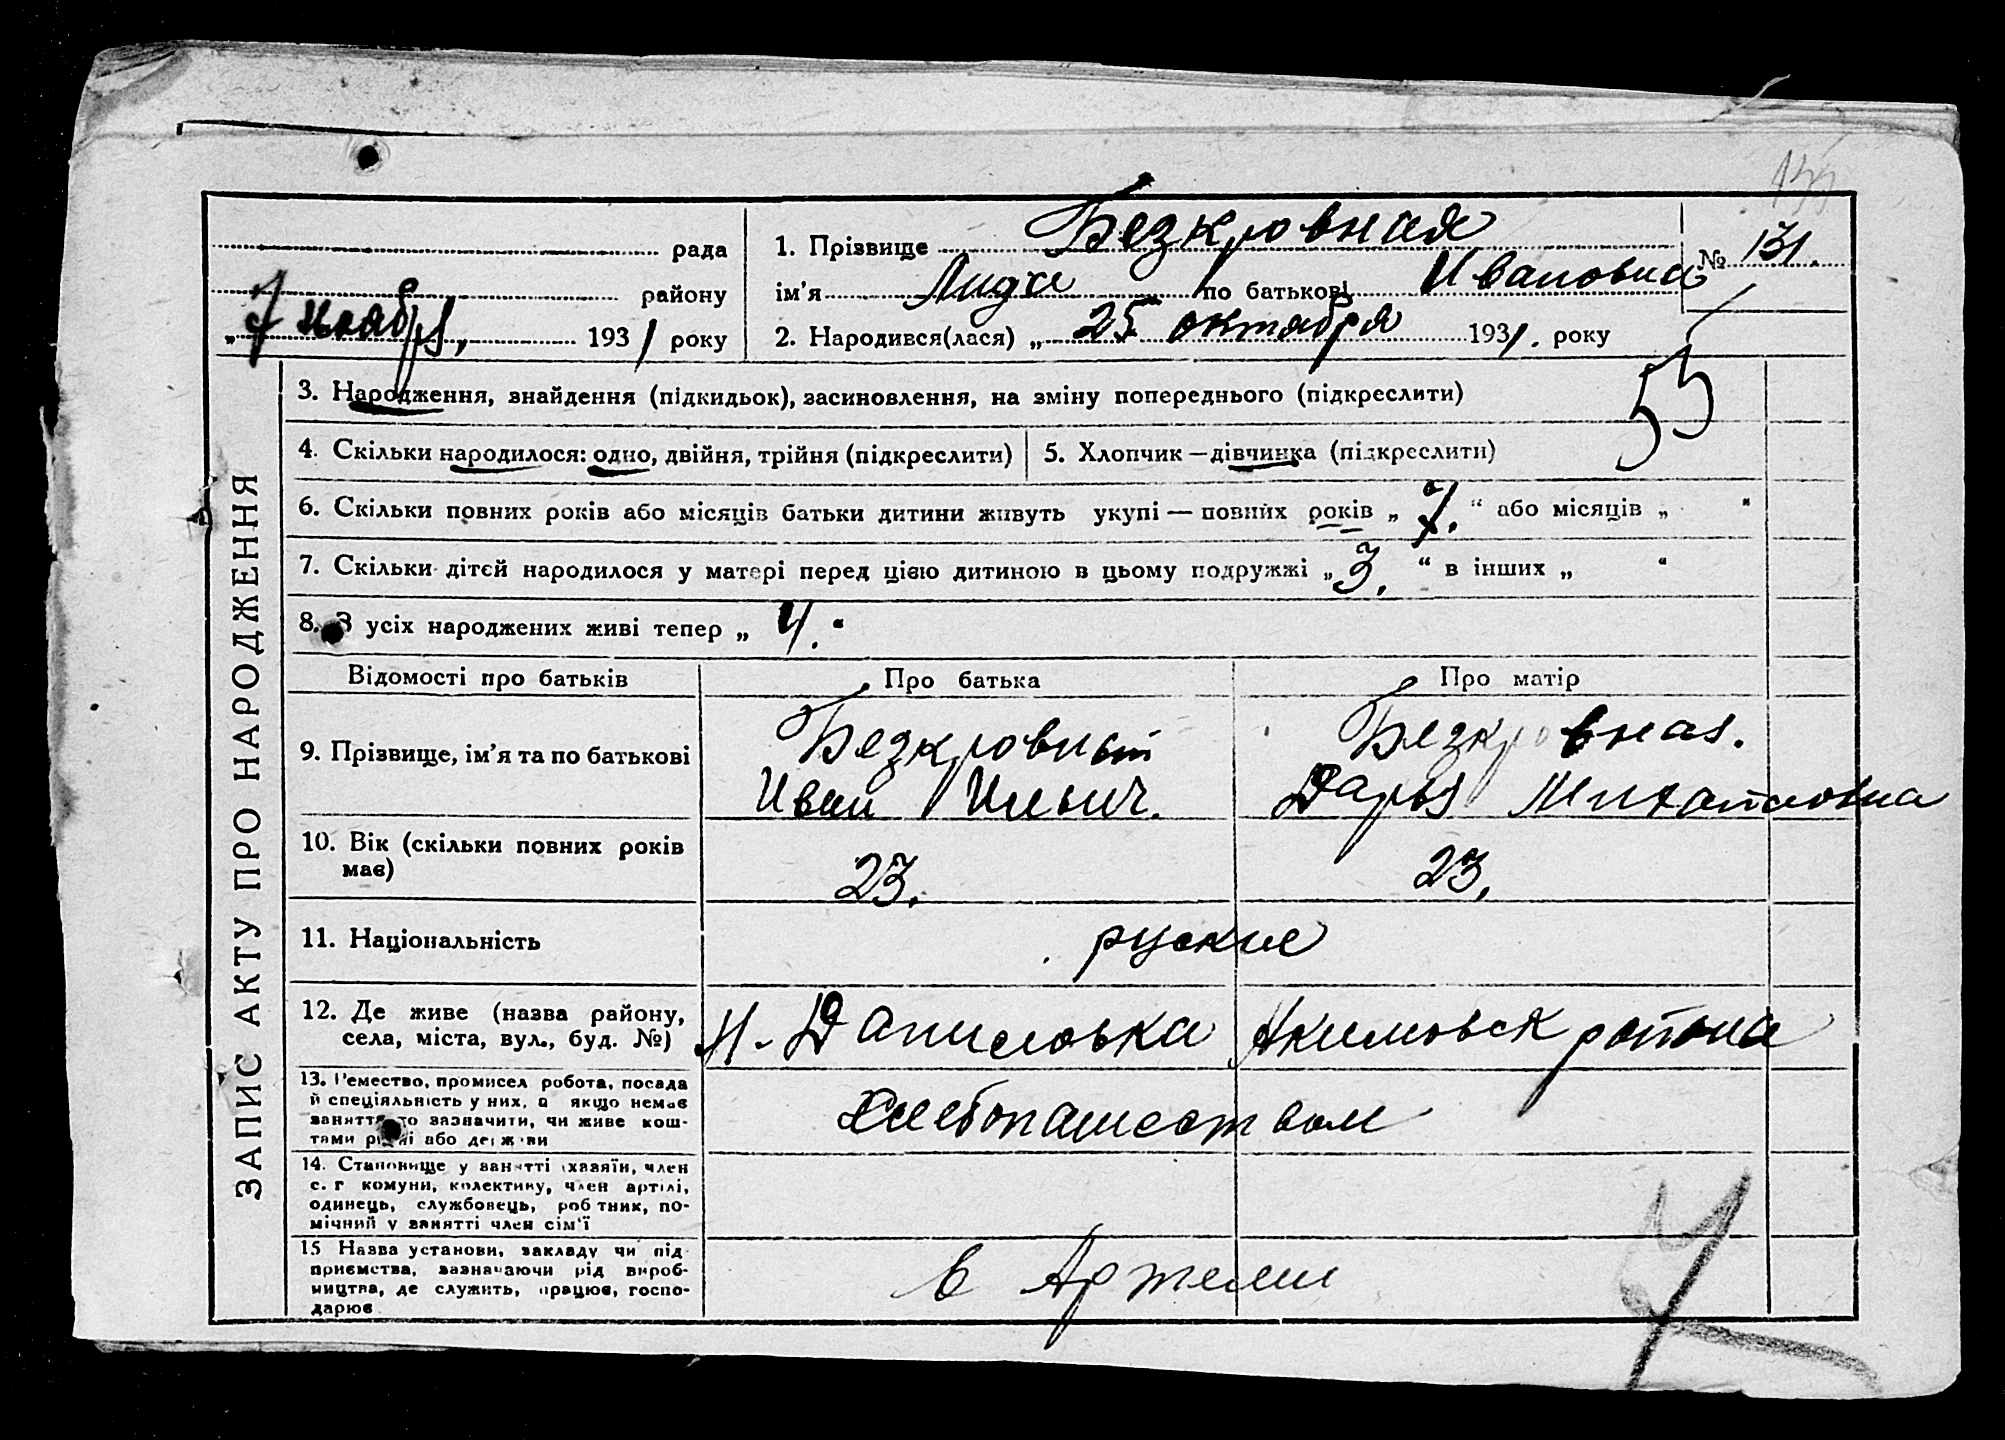 рада
району
„ 7 ноября, 1931 року
1. Прізвище Безкровная
ім'я Лида по батькові Ивановна
№ 131.
2. Народився(лася) „ 25 октября 1931. року
53
ЗАПИС АКТУ ПРО НАРОДЖЕННЯ
3. Народження, знайдення (підкидьок), засиновлення, на зміну попереднього (підкреслити)
4. Скільки народилося: одно, двійня, трійня (підкреслити)
5. Хлопчик — дівчинка (підкреслити)
6. Скільки повних років або місяців батьки дитини живуть укупі — повних років „ 7. “ або місяців „ “
7. Скільки дітей народилося у матері перед цією дитиною в цьому подружжі „ 3. “ в інших „ “
8. З усіх народжених живі тепер „ 4. “
Відомості про батьків
Про батька
Про матір
9. Прізвище, ім'я та по батькові
Безкровный
Иван Ильич.
Безкровная.
Дарья Михайловна
10. Вік (скільки повних років
має)
23.
23.
11. Національність
руские
12. Де живе (назва району,
села, міста, вул., буд. №)
Н-Даниловка Акимовск района
13. Ремество, промисел робота, посада
й спеціяльність у них, а якщо немає
заняття то зазначити, чи живе кош-
тами рідні або держави
Хлебопашеством
14. Становище у занятті хазяїн, член
с. г комуни, колективу, член артілі,
одинець, службовець, робітник, по-
мічний у занятті член сім'ї
15 Назва установи, закладу чи під
приємства, зазначаючи рід вироб-
ництва, де служить, працює, госпо-
дарює
в Артели